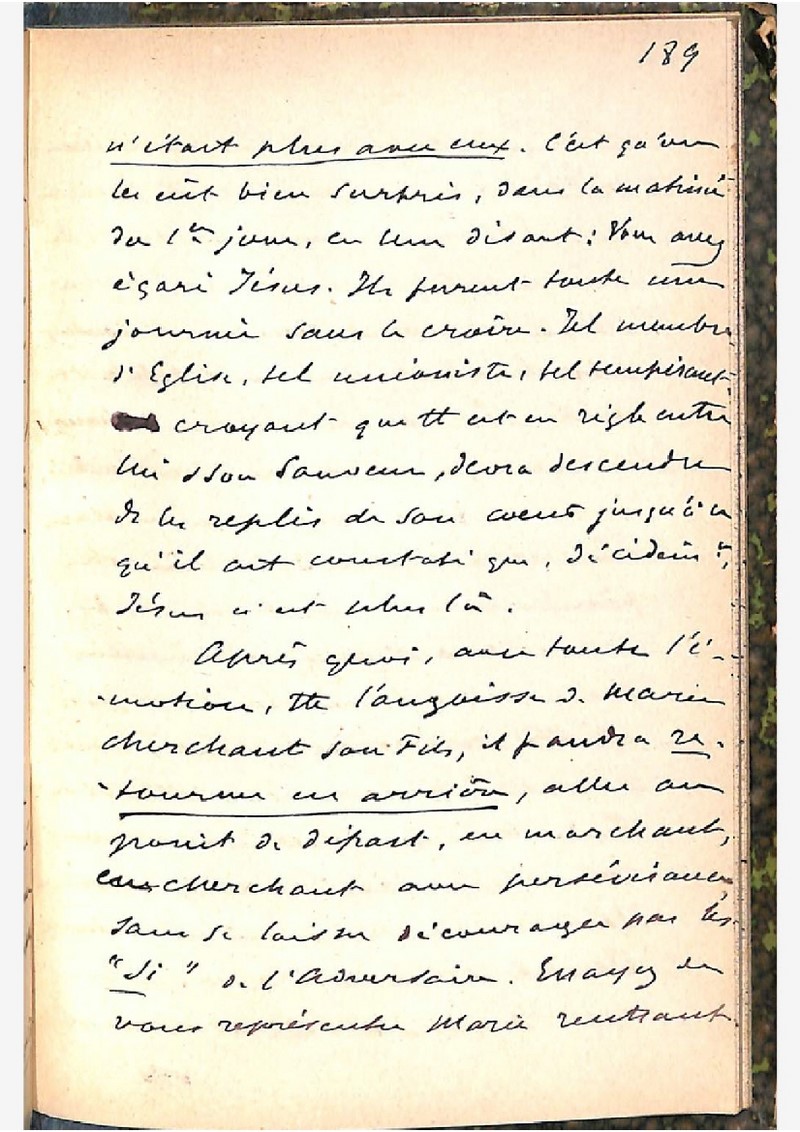 189
n'était plus avec eux. C'est qu'on
les eût bien surpris, dans la matinée
du 1er jour, en leur disant : Vous avez
égaré Jésus. Ils furent toute une
journée sans le croire. Tel membre
d'Eglise, tel unioniste, tel tempérant,
croyant que tt est en règle entre
lui & son Sauveur, devra descendre
ds les replis de son coeur jusqu'à ce
qu'il ait constaté que, décidémt,
Jésus n'est plus là.
Après quoi, avec toute l'é-
-motion, tte l'angoisse de Marie
cherchant son Fils, il faudra re-
-tourner en arrière, aller au
point de départ, en marchant,
en cherchant avec persévérance,
sans se laisser décourager par les
"Si" de l'Adversaire. Essayez de
vous représenter Marie rentrant